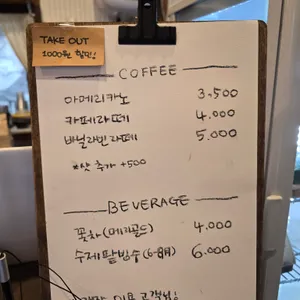 TAKE OUT
1000원 할인!
COFFEE
아메리카노 3.500
카페라떼 4.000
바닐라빈라떼 5.000
*샷 추가 +500
BEVERAGE
꽃차(메리골드) 4.000
수제팥빙수(6-8月) 6.000